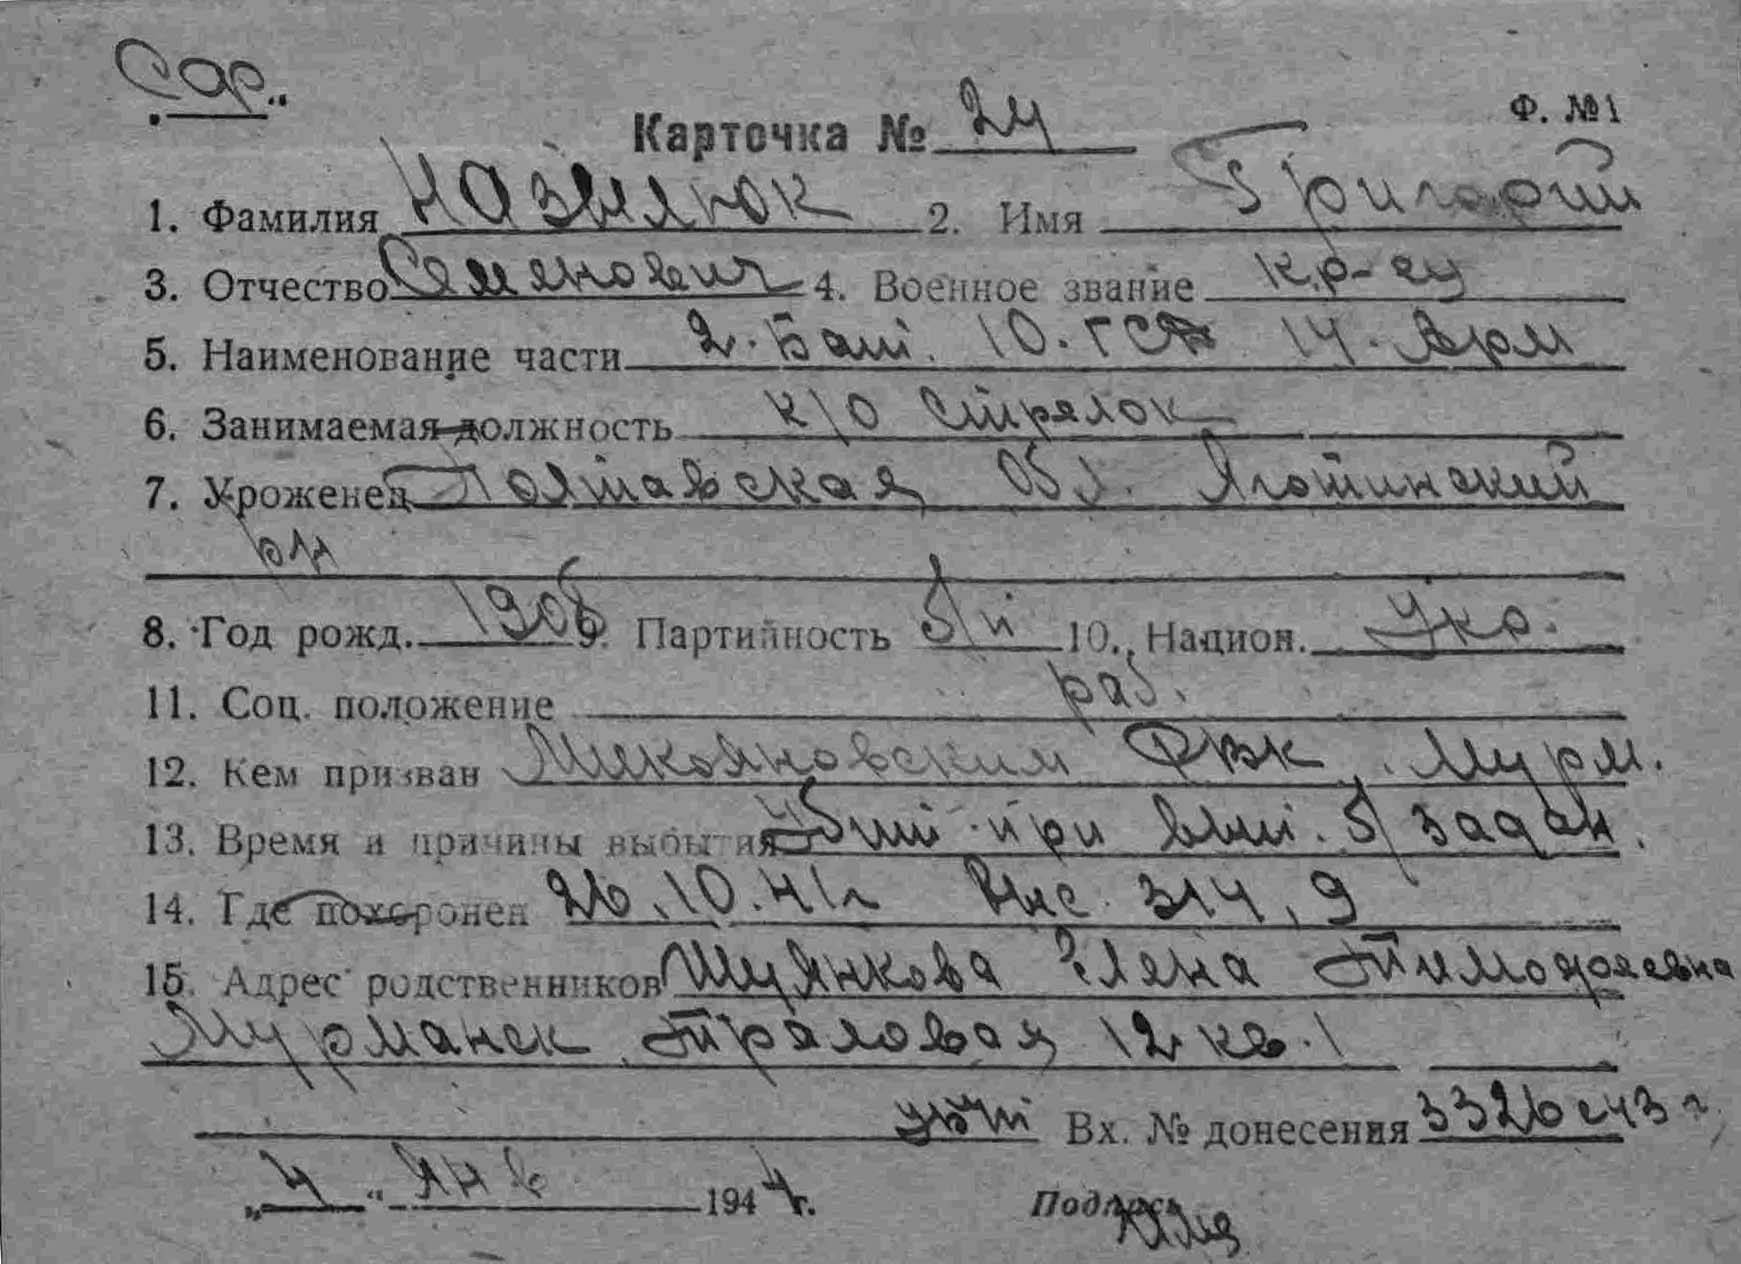 Сар.
Карточка № 24 Ф. №1
1. Фамилия Назылюк 2. Имя Григорий
3. Отчество Семенович 4. Военное звание кр-ец
5. Наименование части 2. Бат. 10. ГСД 14. Арм
6. Занимаемая должность к/о Стрелок
7. Уроженец Полтавская Обл. Яготинский
рн
8. Год рожд. 1906 9. Партийность б/п 10. Национ. Укр.
11. Соц. положение раб.
12. Кем призван Микояновским РВК Мурм.
13. Время и причины выбытия Убит при вып. б/задан.
14. Где похоронен 26.10.41г Выс. 314,9
15. Адрес родственников Елена Тимофеевна
Мурманск Траловая 12 кв. 1
убит Вх. № донесения 3326с 43г
„4“ янв 1944г. Подпись